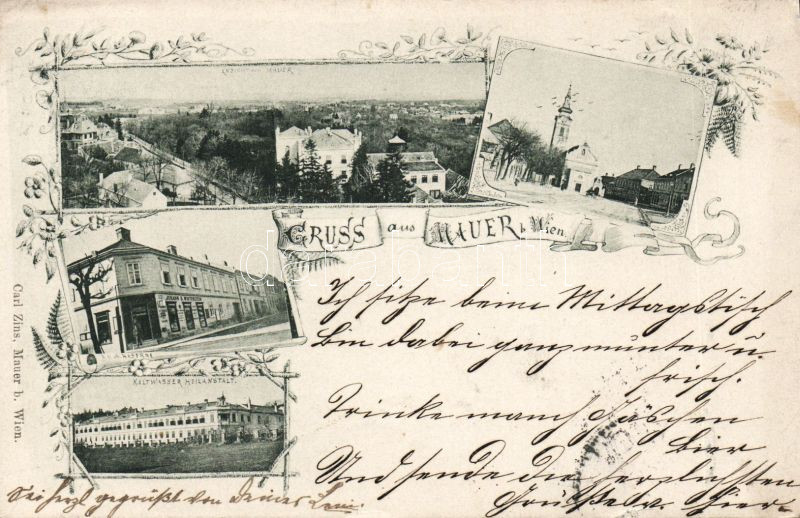 ANSICHT von MAUER
GRUSS aus MAUER b. Wien.
KALTWASSER HEILANSTALT.
Carl Zins, Mauer b. Wien.
Ich sitze beim Mittagstisch
bin dabei ganz munter u.
frisch.
Trinke manch Gäschen
bier
Und sende die herzlichsten
Grüsse v. hier
Sei herzl gegrüßt von Deiner